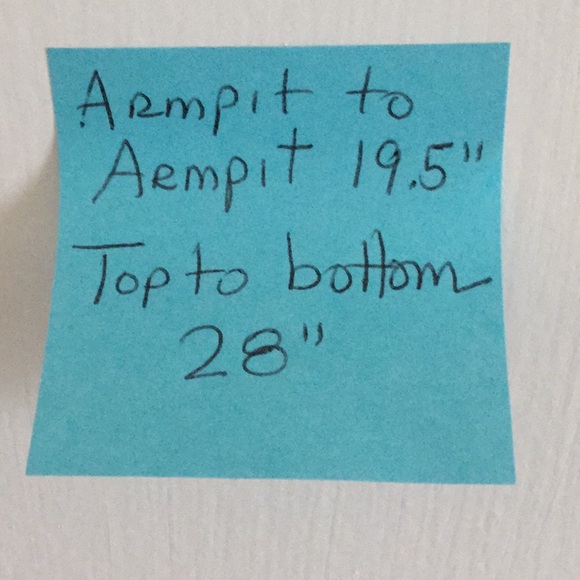 Armpit to
Armpit 19.5"
Top to bottom
28"